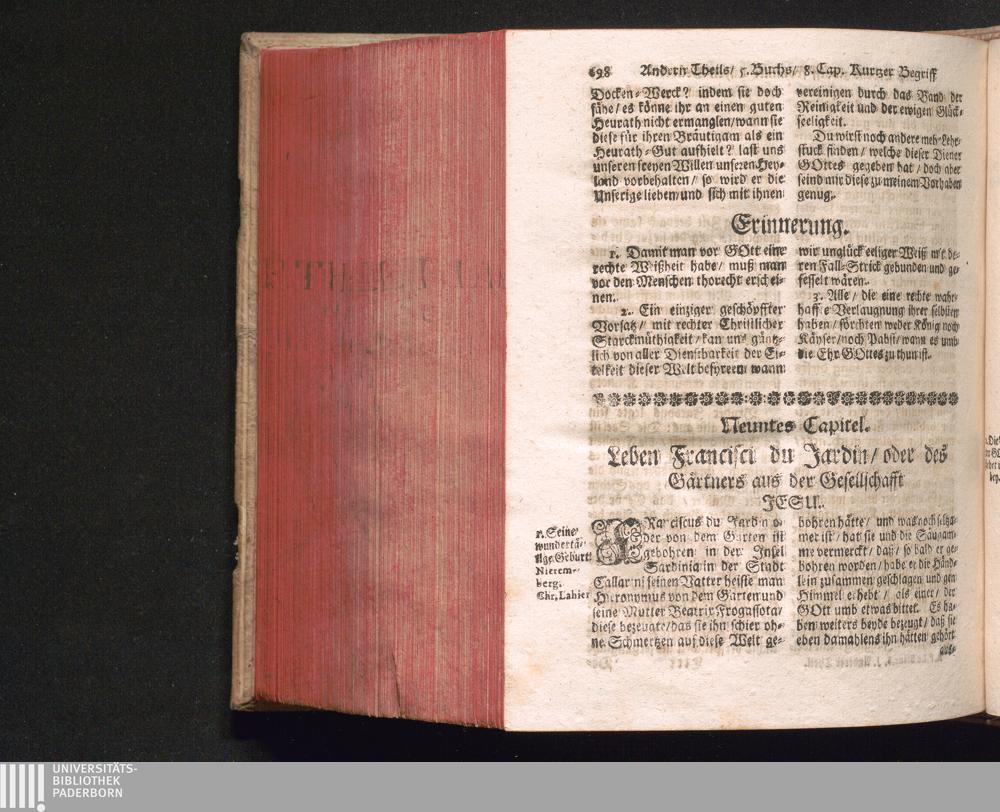 698 Andern Theils/ 5. Buchs/ 8. Cap. Kurtzer Begriff
Docken-Werck? indem sie doch
sähe/ es könne ihr an einen guten
Heurath nicht ermanglen/ wann sie
diese für ihren Bräutigam als ein
Heurath-Gut aufhielt? last uns
unseren freyen Willen unseren Hey-
land vorbehalten/ so wird er die
Unserige lieben/ und sich mit ihnen
vereinigen durch das Band der
Reinigkeit und der ewigen Glück-
seeligkeit.
Du wirst noch andere meh-Lehr-
stuck finden/ welche dieser Diener
GOttes gegeben hat/ doch aber
seind mir diese zu meinem Vorhaben
genug.
Erinnerung.
1. Damit man vor GOtt eine
rechte Weißheit habe/ muß man
vor den Menschen thorecht erschei-
nen.
2. Ein einziger geschöpffter
Vorsatz/ mit rechter Christlicher
Starckmüthigkeit/ kan uns gäntz-
lich von aller Dienstbarkeit der Ei-
telkeit dieser Welt befreyen/ wann
wir unglückseeliger Weiß mit de-
ren Fall-Strick gebunden und ge-
fesselt wären.
3. Alle/ die eine rechte wahr-
haffte Verlaugnung ihrer selbsten
haben/ förchten weder König noch
Käyser/ noch Pabst/ wann es umb
die Ehr GOttes zu thun ist.
Neuntes Capitel.
Leben Francisci du Jardin/ oder des
Gärtners aus der Gesellschafft
JESU.
1. Seine
wundertä-
tige Geburt.
Nierem-
berg.
Chr. Lahier
FRanciscus du Jardin o-
der von dem Garten ist
gebohren in der Insel
Sardinia in der Stadt
Callari/ seinen Vatter heiste man
Hieronymus von dem Garten und
seine Mutter Beatrix Frogassota/
diese bezeugte/ das sie ihn schier oh-
ne Schmertzen auf diese Welt ge-
bohren hätte/ und was noch seltza-
mer ist/ hat sie und die Säugam-
me vermerckt/ daß/ so bald er ge-
bohren worden/ habe er die Händ-
lein zusammen geschlagen und gen
Himmel erhebt/ als einer/ der
GOtt umb etwas bittet. Es ha-
ben weiters beyde bezeugt/ daß sie
eben damahlens ihn hätten gehört
aus-
UNIVERSITÄTS-
BIBLIOTHEK
PADERBORN